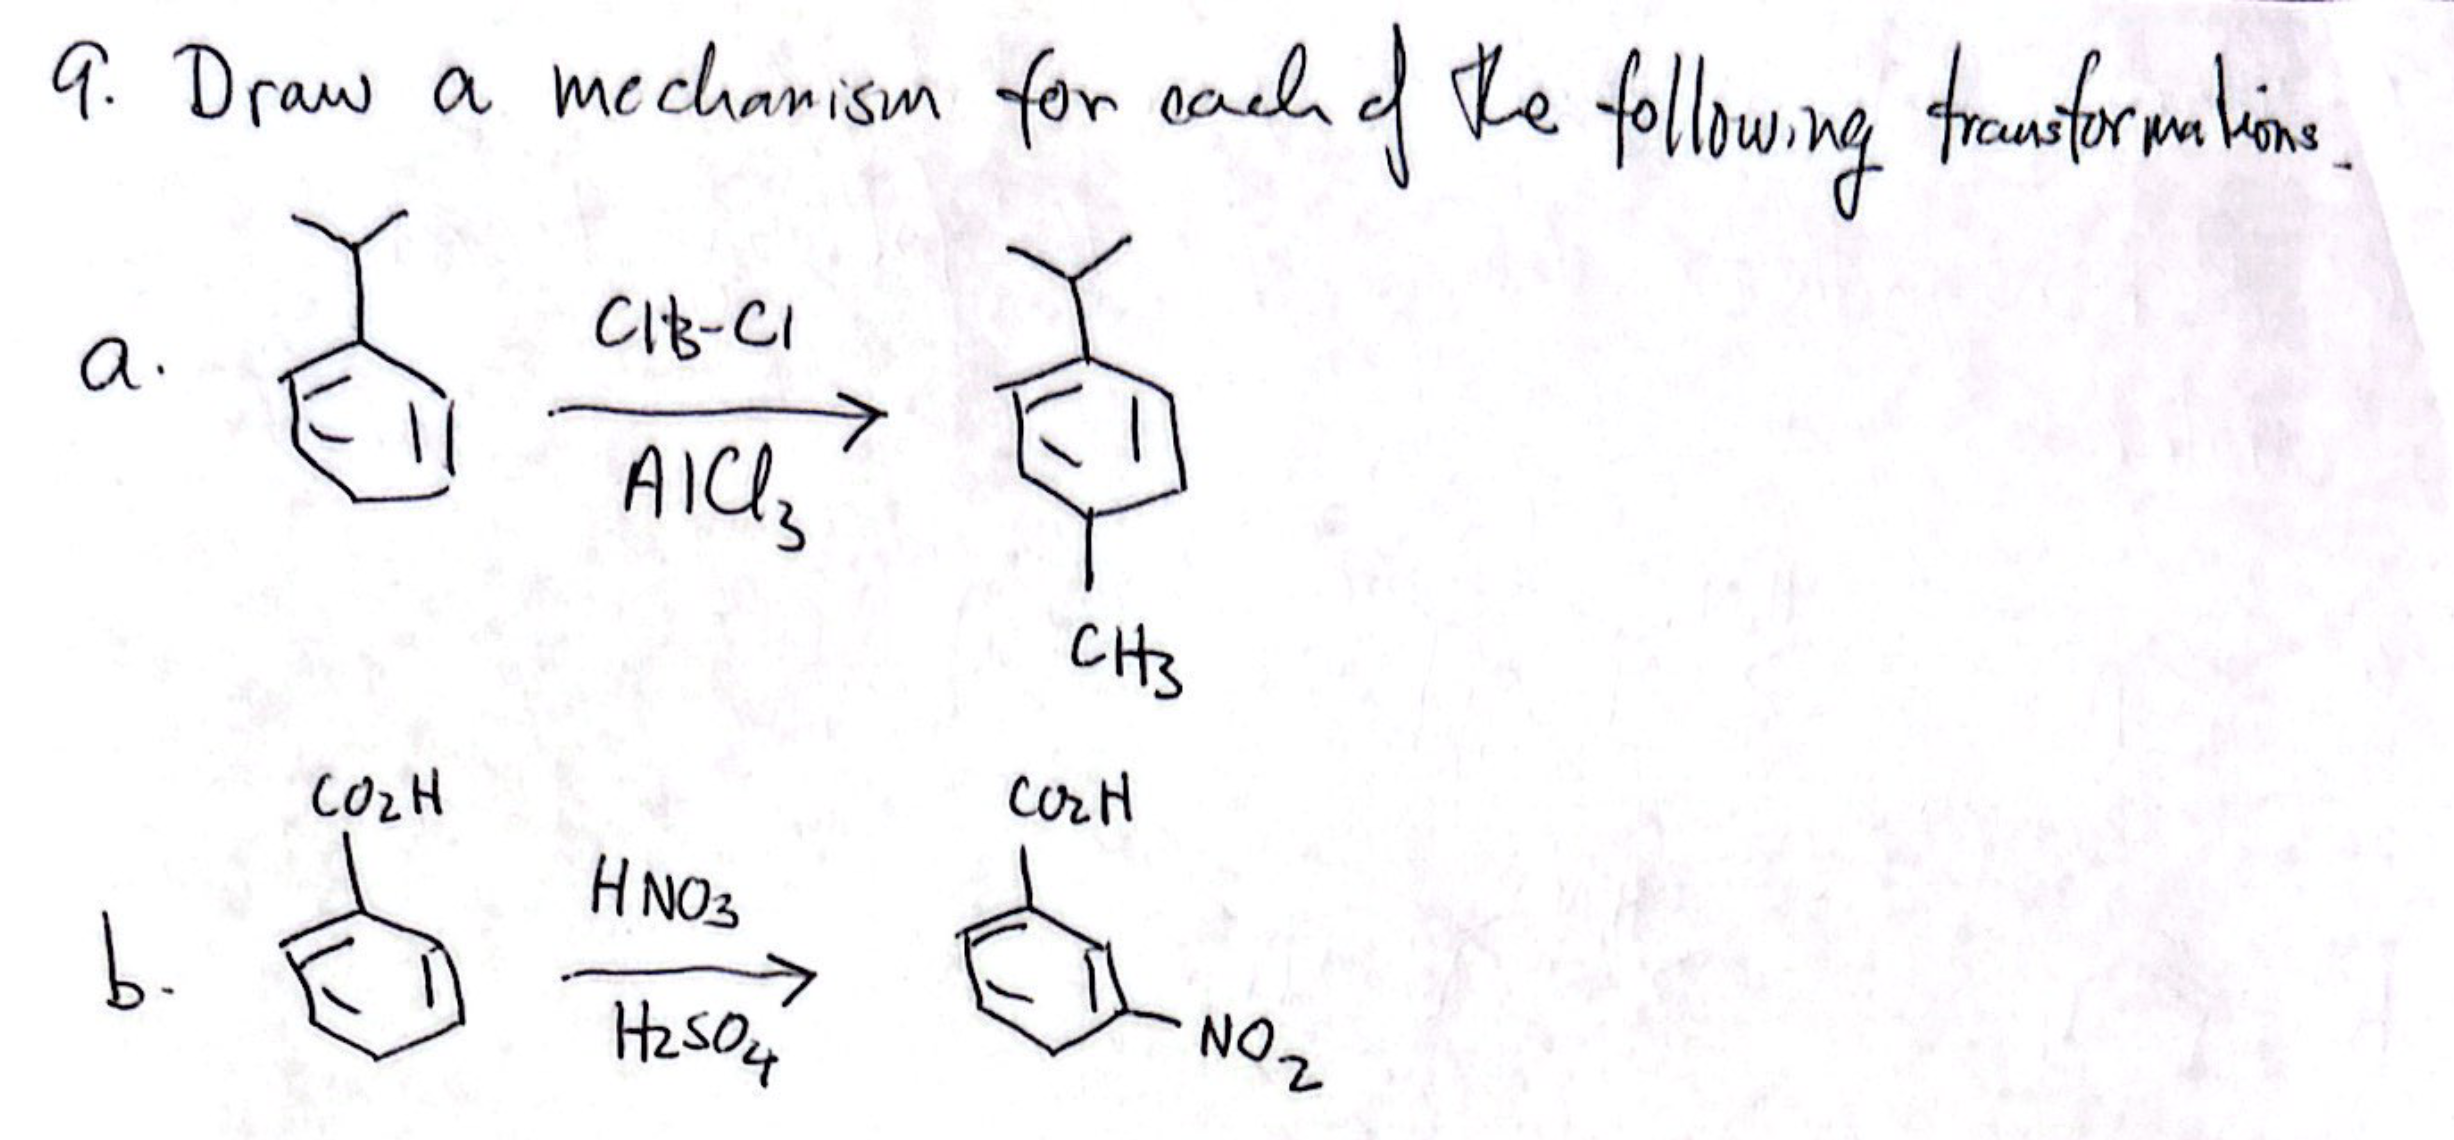 9. Draw a mechanism for each of the following transformations.
a.
CH3-Cl
AlCl3
CH3
b.
CO2H
HNO3
H2SO4
CO2H
NO2